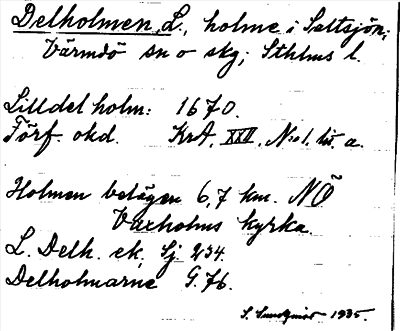 Delholmen, L., holme i Saltsjön;
Värmdö sn o skg; Sthlms l.
Lilldelholm: 1670.
Förf. okd. KrA, XXII, No 1, lit a.
Holmen belägen 6,7 km. NÖ
Vaxholms kyrka.
L. Delh. ek. Sj. 234.
Delholmarne G. 76.
S. Sundqvist 1935.